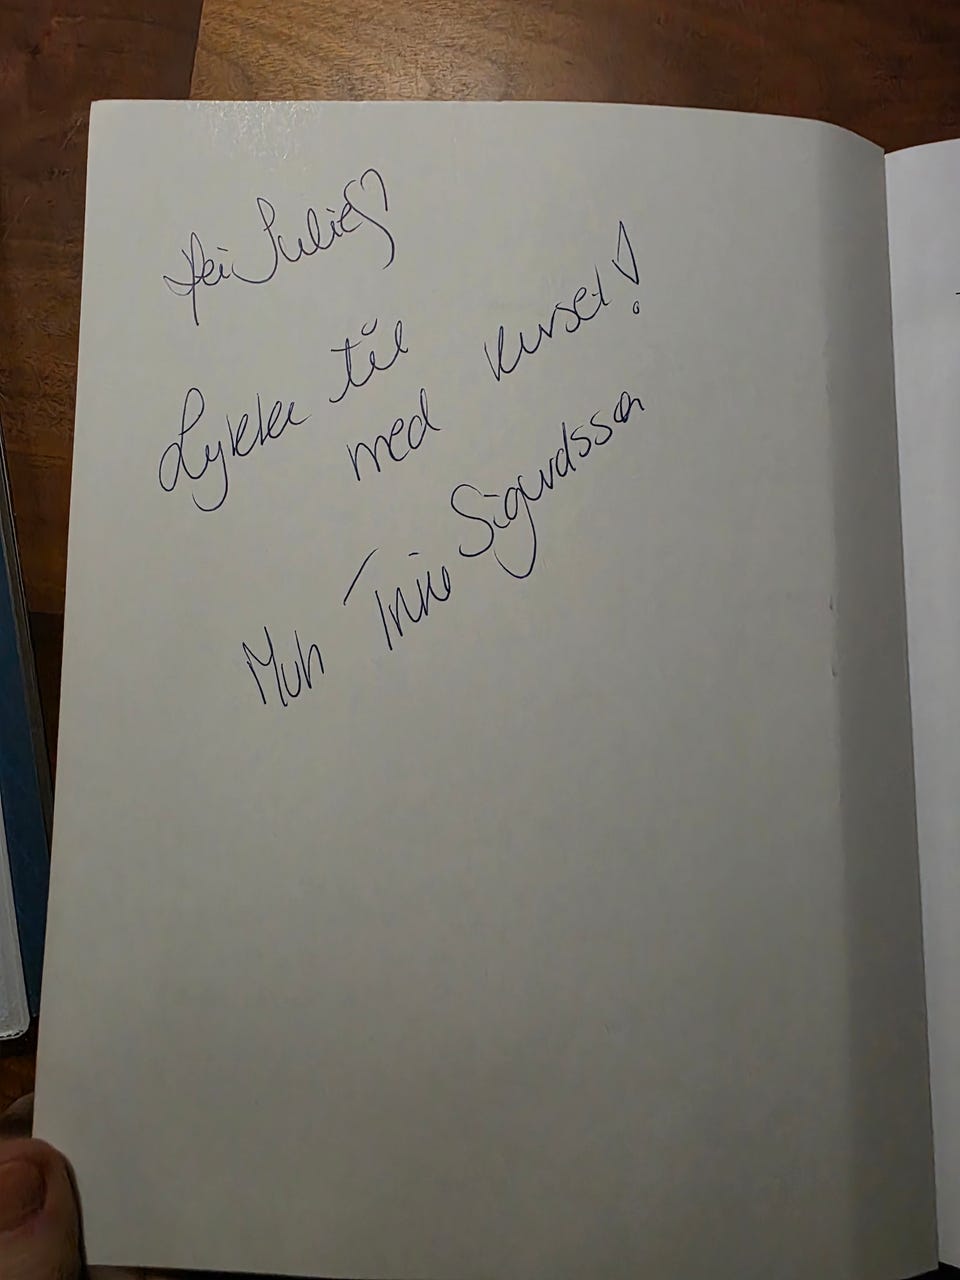 Hei Julie ♡
Lykke til
med kurset!
Mvh Trine Sigurdsson